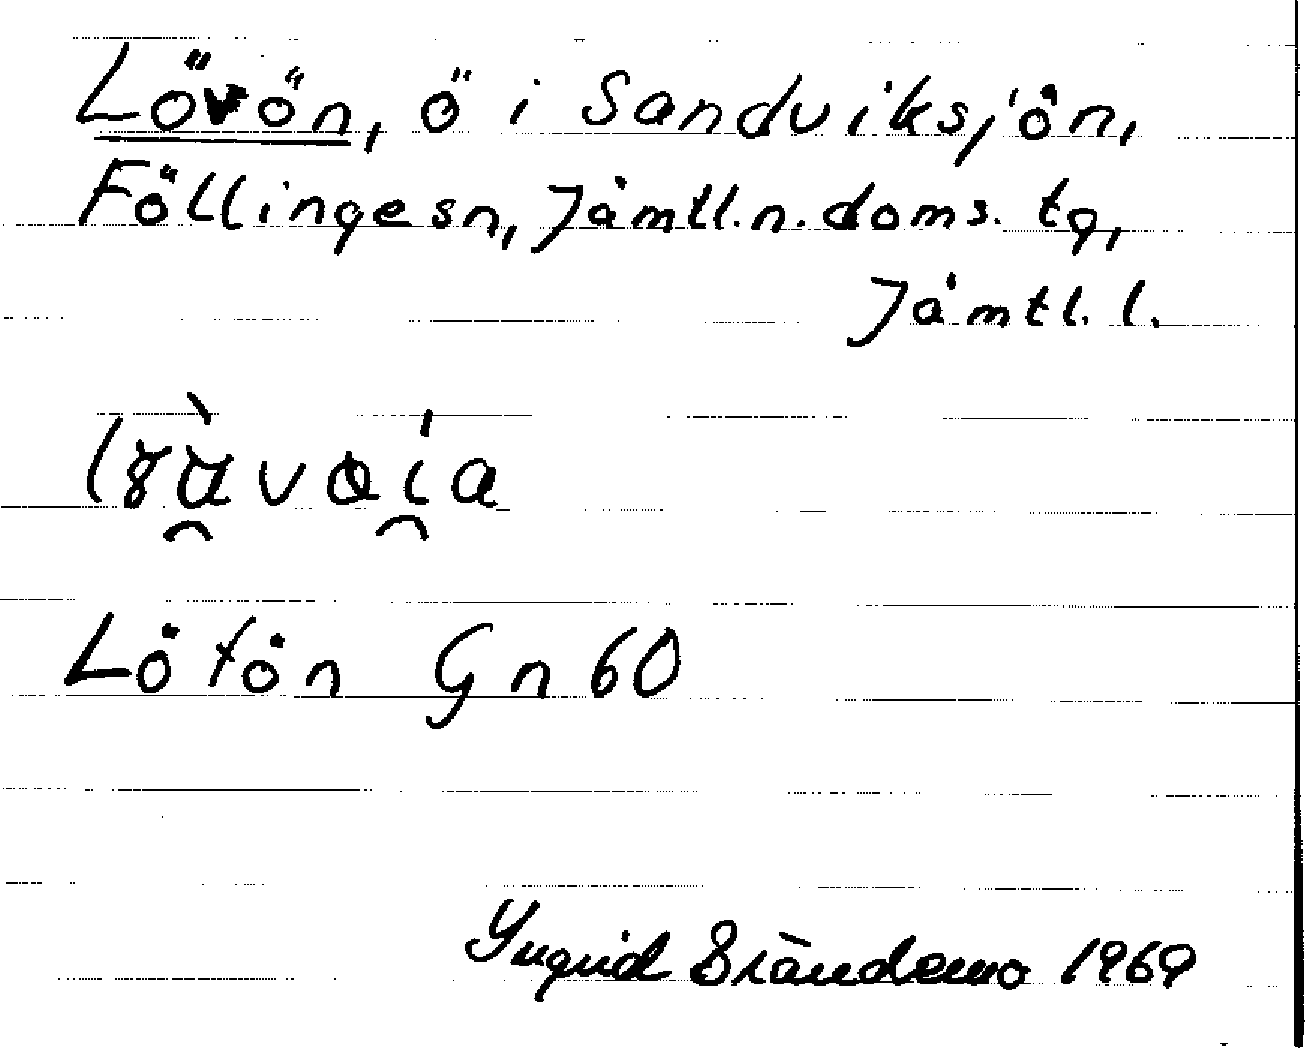 Lövön, ö i Sandviksjön,
Föllingesn, Jämtl.n.doms.tg,
Jämtl.l.
Lötön Gn 60
Yngvid Brändemo 1969